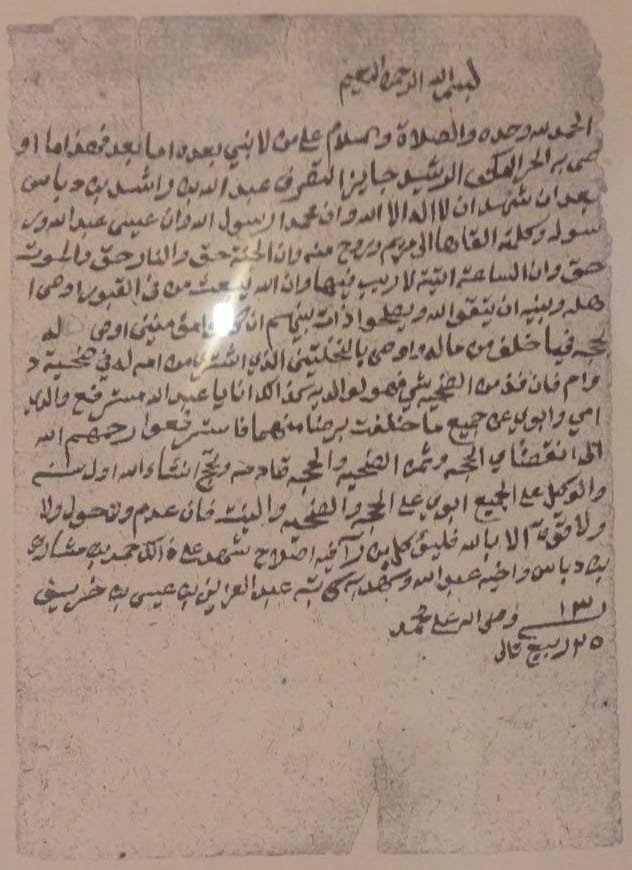 بسم الله الرحمن الرحيم
الحمد لله وحده والصلاة والسلام على من لا نبي بعده اما بعد فهذا ما او
صى به الحر المكلف الرشيد جايز التصرف عبد الله بن راشد بن دباس
بعد ان شهد ان لا اله الا الله وان محمدا رسول الله وان عيسى عبد الله ور
سوله وكلمته القاها الى مريم وروح منه وان الجنة حق والنار حق والموت
حق وان الساعة اتية لا ريب فيها وان الله يبعث من في القبور اوصى ا
هله وبنيه ان يتقوا الله ويصلحوا ذات بينهم ان كانوا مؤمنين اوصى له
بحجه فيما خلف من ماله واوصى بالنخلتين الذي اشترى من امه له في ضحية د
وام فان فذ من الضحيه شي فهو لوالديه كذالك انا يا عبد الله مسترفع والدي
امي وابوي عن جميع ما خلفت برضا منهما فاسترفعوا رحمهم الله
الى انقضاي الحجه وثمرة الضحيه والحجه قادمه وتحج انشاء الله اول سنه
والوكيل على الجميع ابوي على الحجه والضحيه والبيت فان عدم ولا حول ولا
ولا قوة الا بالله فليق كل من راى فيه اصلاح شهد على ذالك حمد بن مشاري
بن دباس واخيه عبد الله وشهد به كاتبه عبد العزيز بن عيسى بن خريف
١٣ وصلى الله على محمد
٢٥ ربيع تالى